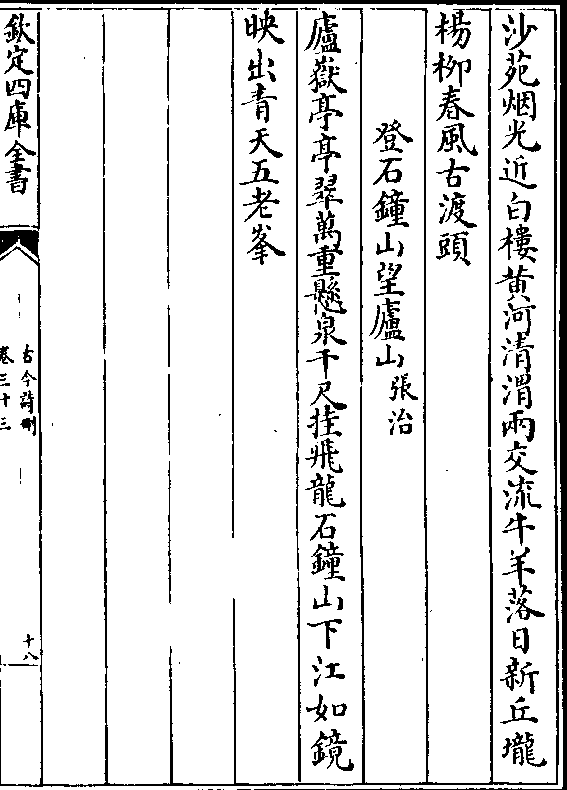 沙苑烟光近白樓黄河清渭兩交流牛羊落日新丘壠
楊栁春風古渡頭
登石鐘山望廬山張治
廬嶽亭亭翠萬重懸泉千尺挂飛龍石鐘山下江如鏡
映出青天五老峯
欽定四庫全書
古今詩刪
卷三十三
十八